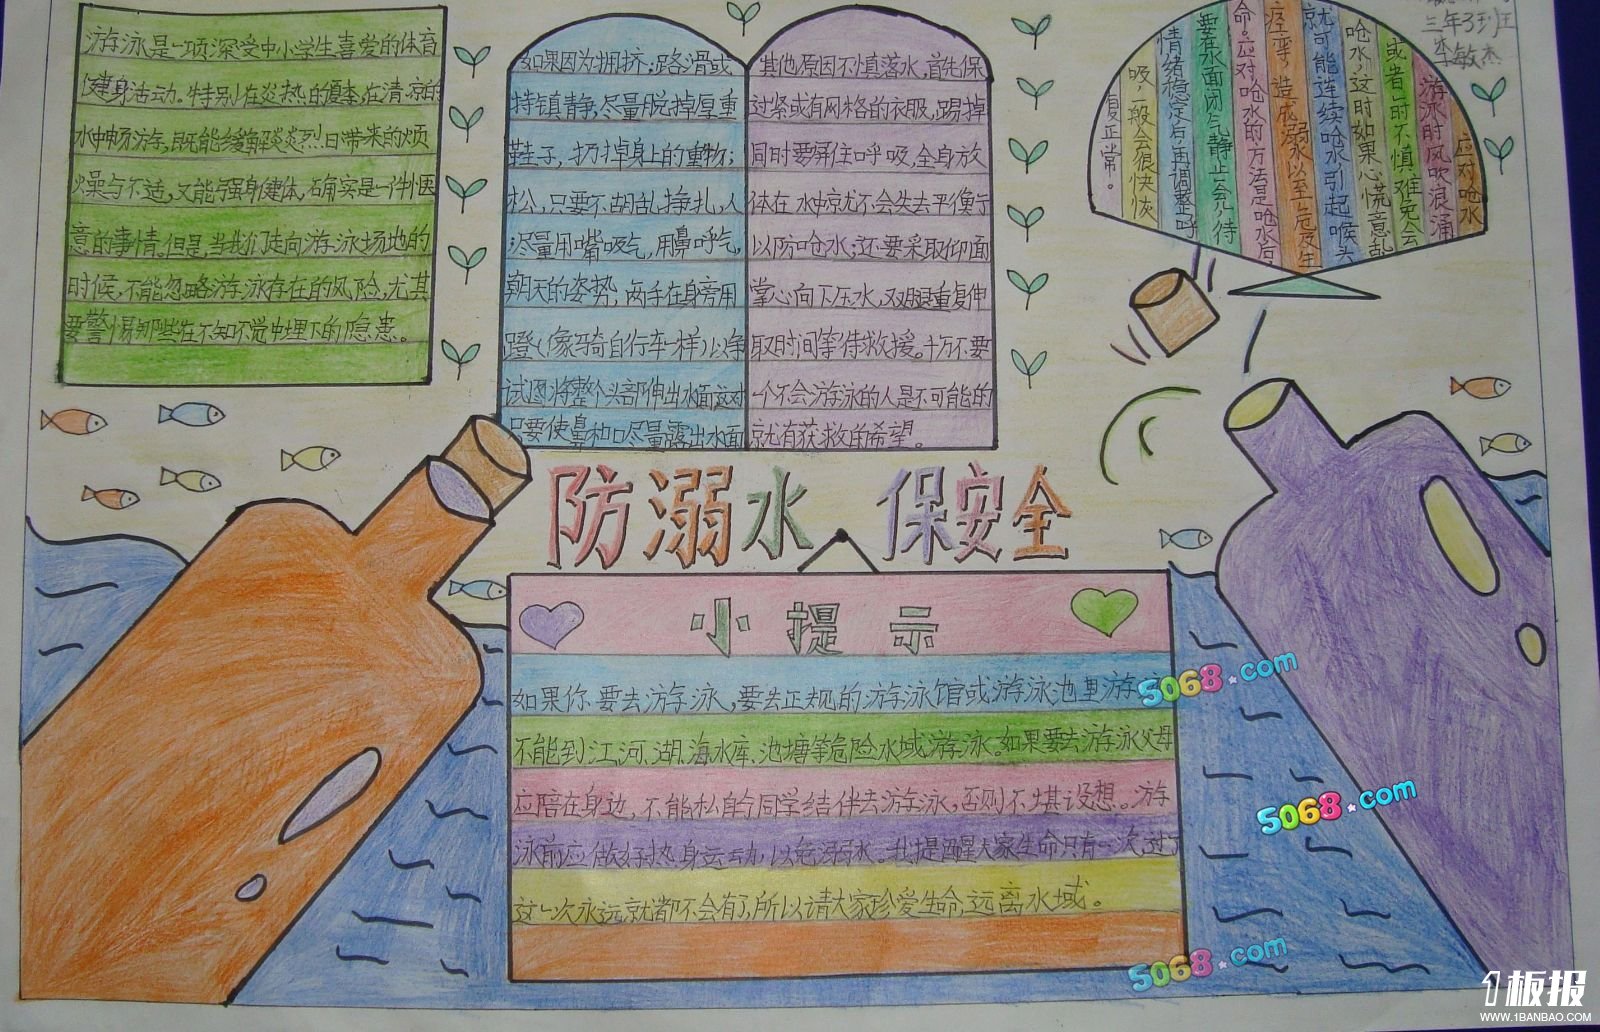 游泳是一项深受中小学生喜爱的体育
健身活动。特别在炎热的夏季,在清凉的
水中畅游,既能缓解炎炎烈日带来的烦
燥与不适,又能强身健体,确实是一件惬
意的事情。但是,当我们走向游泳场地的
时候,不能忽略游泳存在的风险,尤其
要警惕那些在不知不觉中埋下的隐患。
如果因为拥挤;路滑或
持镇静,尽量脱掉厚重
鞋子,扔掉身上的重物;
松,只要不胡乱挣扎,人
;尽量用嘴吸气,用鼻呼气,
朝天的姿势,两手在身旁用
蹬(像骑自行车一样)以争
试图将整个头部伸出水面这对
只要使鼻和口尽量露出水面
其他原因不慎落水,首先保
过紧或有网格的衣服,踢掉
同时要屏住呼吸,全身放
体在水中就不会失去平衡
以防呛水;还要采取仰面
掌心向下压水,双腿重复伸
取时间等待救援。千万不要
一个不会游泳的人是不可能的
就有获救的希望。
应对呛水
游泳时风吹浪涌
或者时不慎难免会
呛水,这时如果心慌意乱
就可能连续呛水,引起喉头
痉挛,造成溺水以至危及生
命。应对呛水的方法是呛水后,
要在水面闭气静止会,待
情绪稳定后,再调整呼
吸,一般会很快恢
复正常。
三年3班
李敏杰
防溺水 保安全
小提示
如果你要去游泳,要去正规的游泳馆或游泳池里游
不能到江,河,湖,海水库,池塘等危险水域游泳。如果要去游泳父母
应陪在身边,不能私自何同学结伴去游泳,否则不堪设想。游
泳前应做好热身运动,以免溺水。我提醒大家生命只有一次,过了
这一次永远就都不会有了,所以请大家珍爱生命,远离水域。
5068.com
5068.com
5068.com
1板报
WWW.1BANBAO.COM